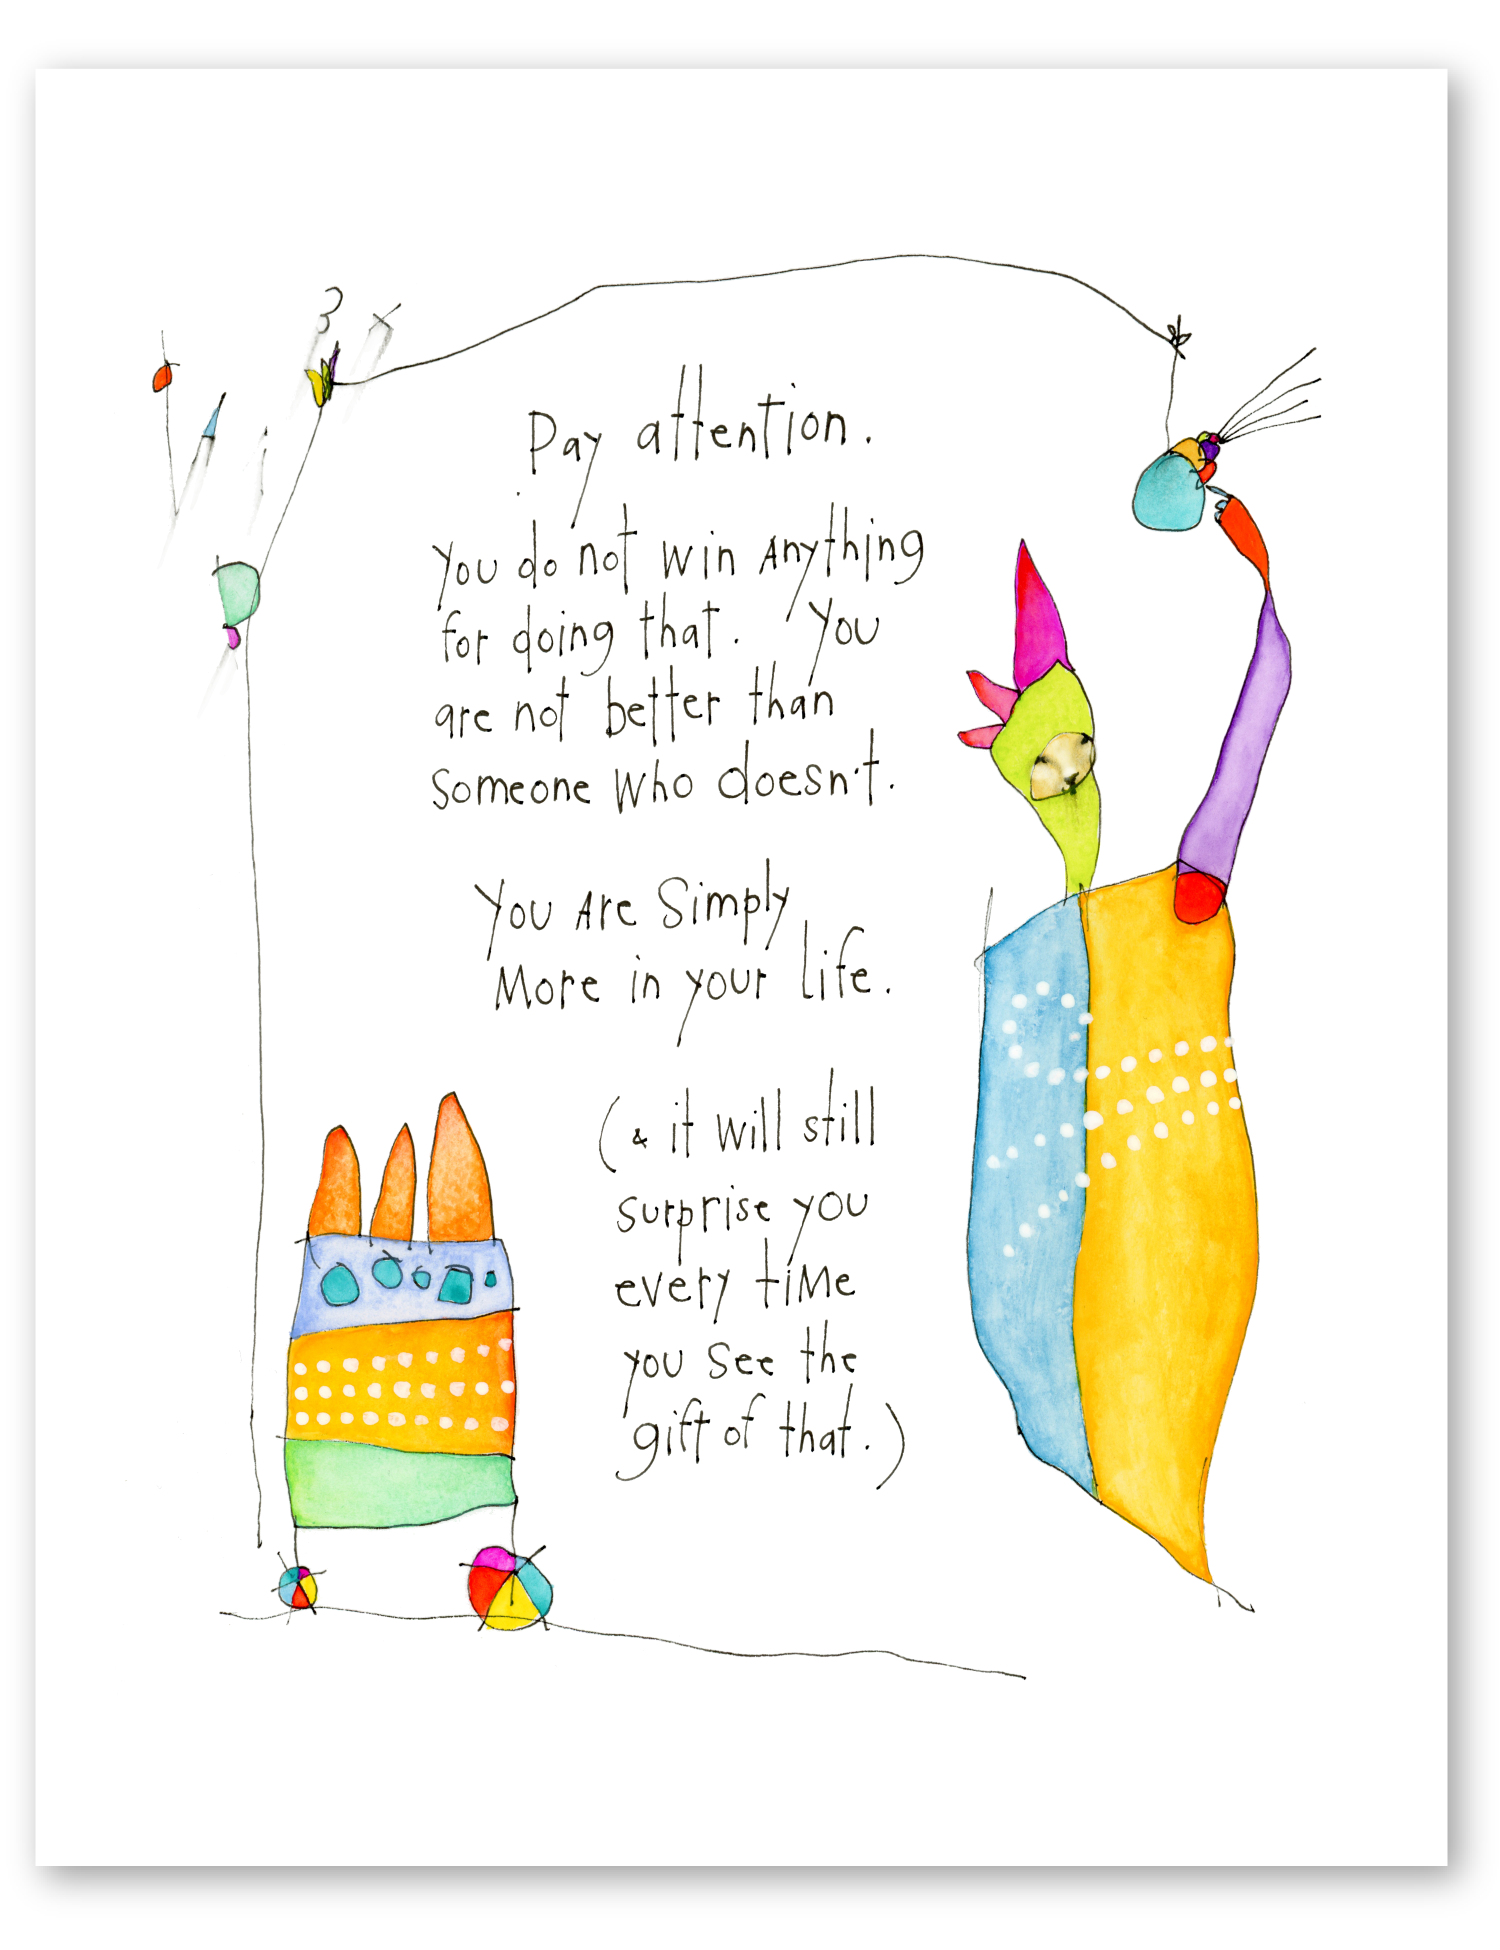 Pay attention.
You do not win Anything
for doing that. You
are not better than
Someone Who doesn't.
You Are Simply
More in your life.
(& it will still
surprise you
every time
you see the
gift of that.)